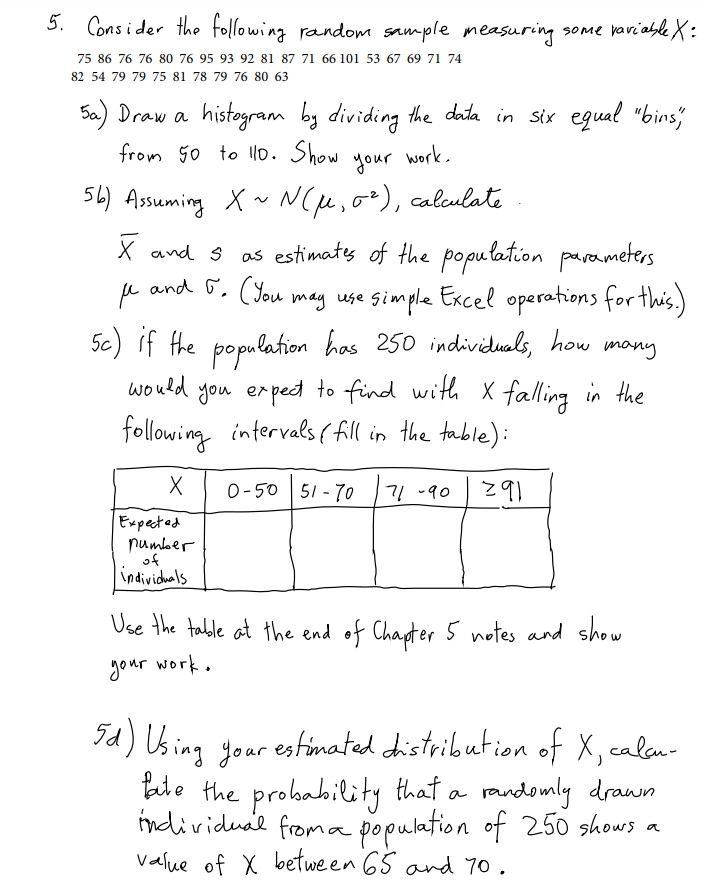 5. Consider the following random sample measuring some variable X:
75 86 76 76 80 76 95 93 92 81 87 71 66 101 53 67 69 71 74
82 54 79 79 75 81 78 79 76 80 63
5a) Draw a histogram by dividing the data in six equal "bins",
from 50 to 110. Show your work.
5b) Assuming X ~ N(μ, σ²), calculate
X̄ and s as estimates of the population parameters
μ and σ. (You may use simple Excel operations for this.)
5c) if the population has 250 individuals, how many
would you expect to find with X falling in the
following intervals (fill in the table):
X 0-50 51-70 71-90 ≥91
Expected
number
of
individuals
Use the table at the end of Chapter 5 notes and show
your work.
5d) Using your estimated distribution of X, calcu-
late the probability that a randomly drawn
individual from a population of 250 shows a
value of X between 65 and 70.